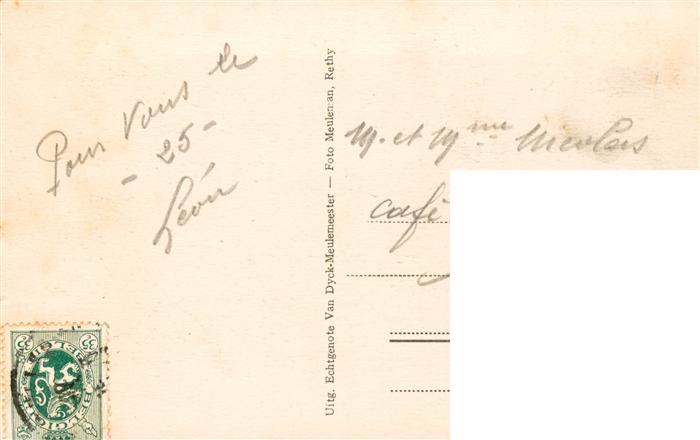 Pour vous le
- 25 -
Léon
Uitg. Echtgenote Van Dyck-Meulemeester — Foto Meuleman, Rethy
M. et Mme Nicolas
café
35 BELGIQUE 35